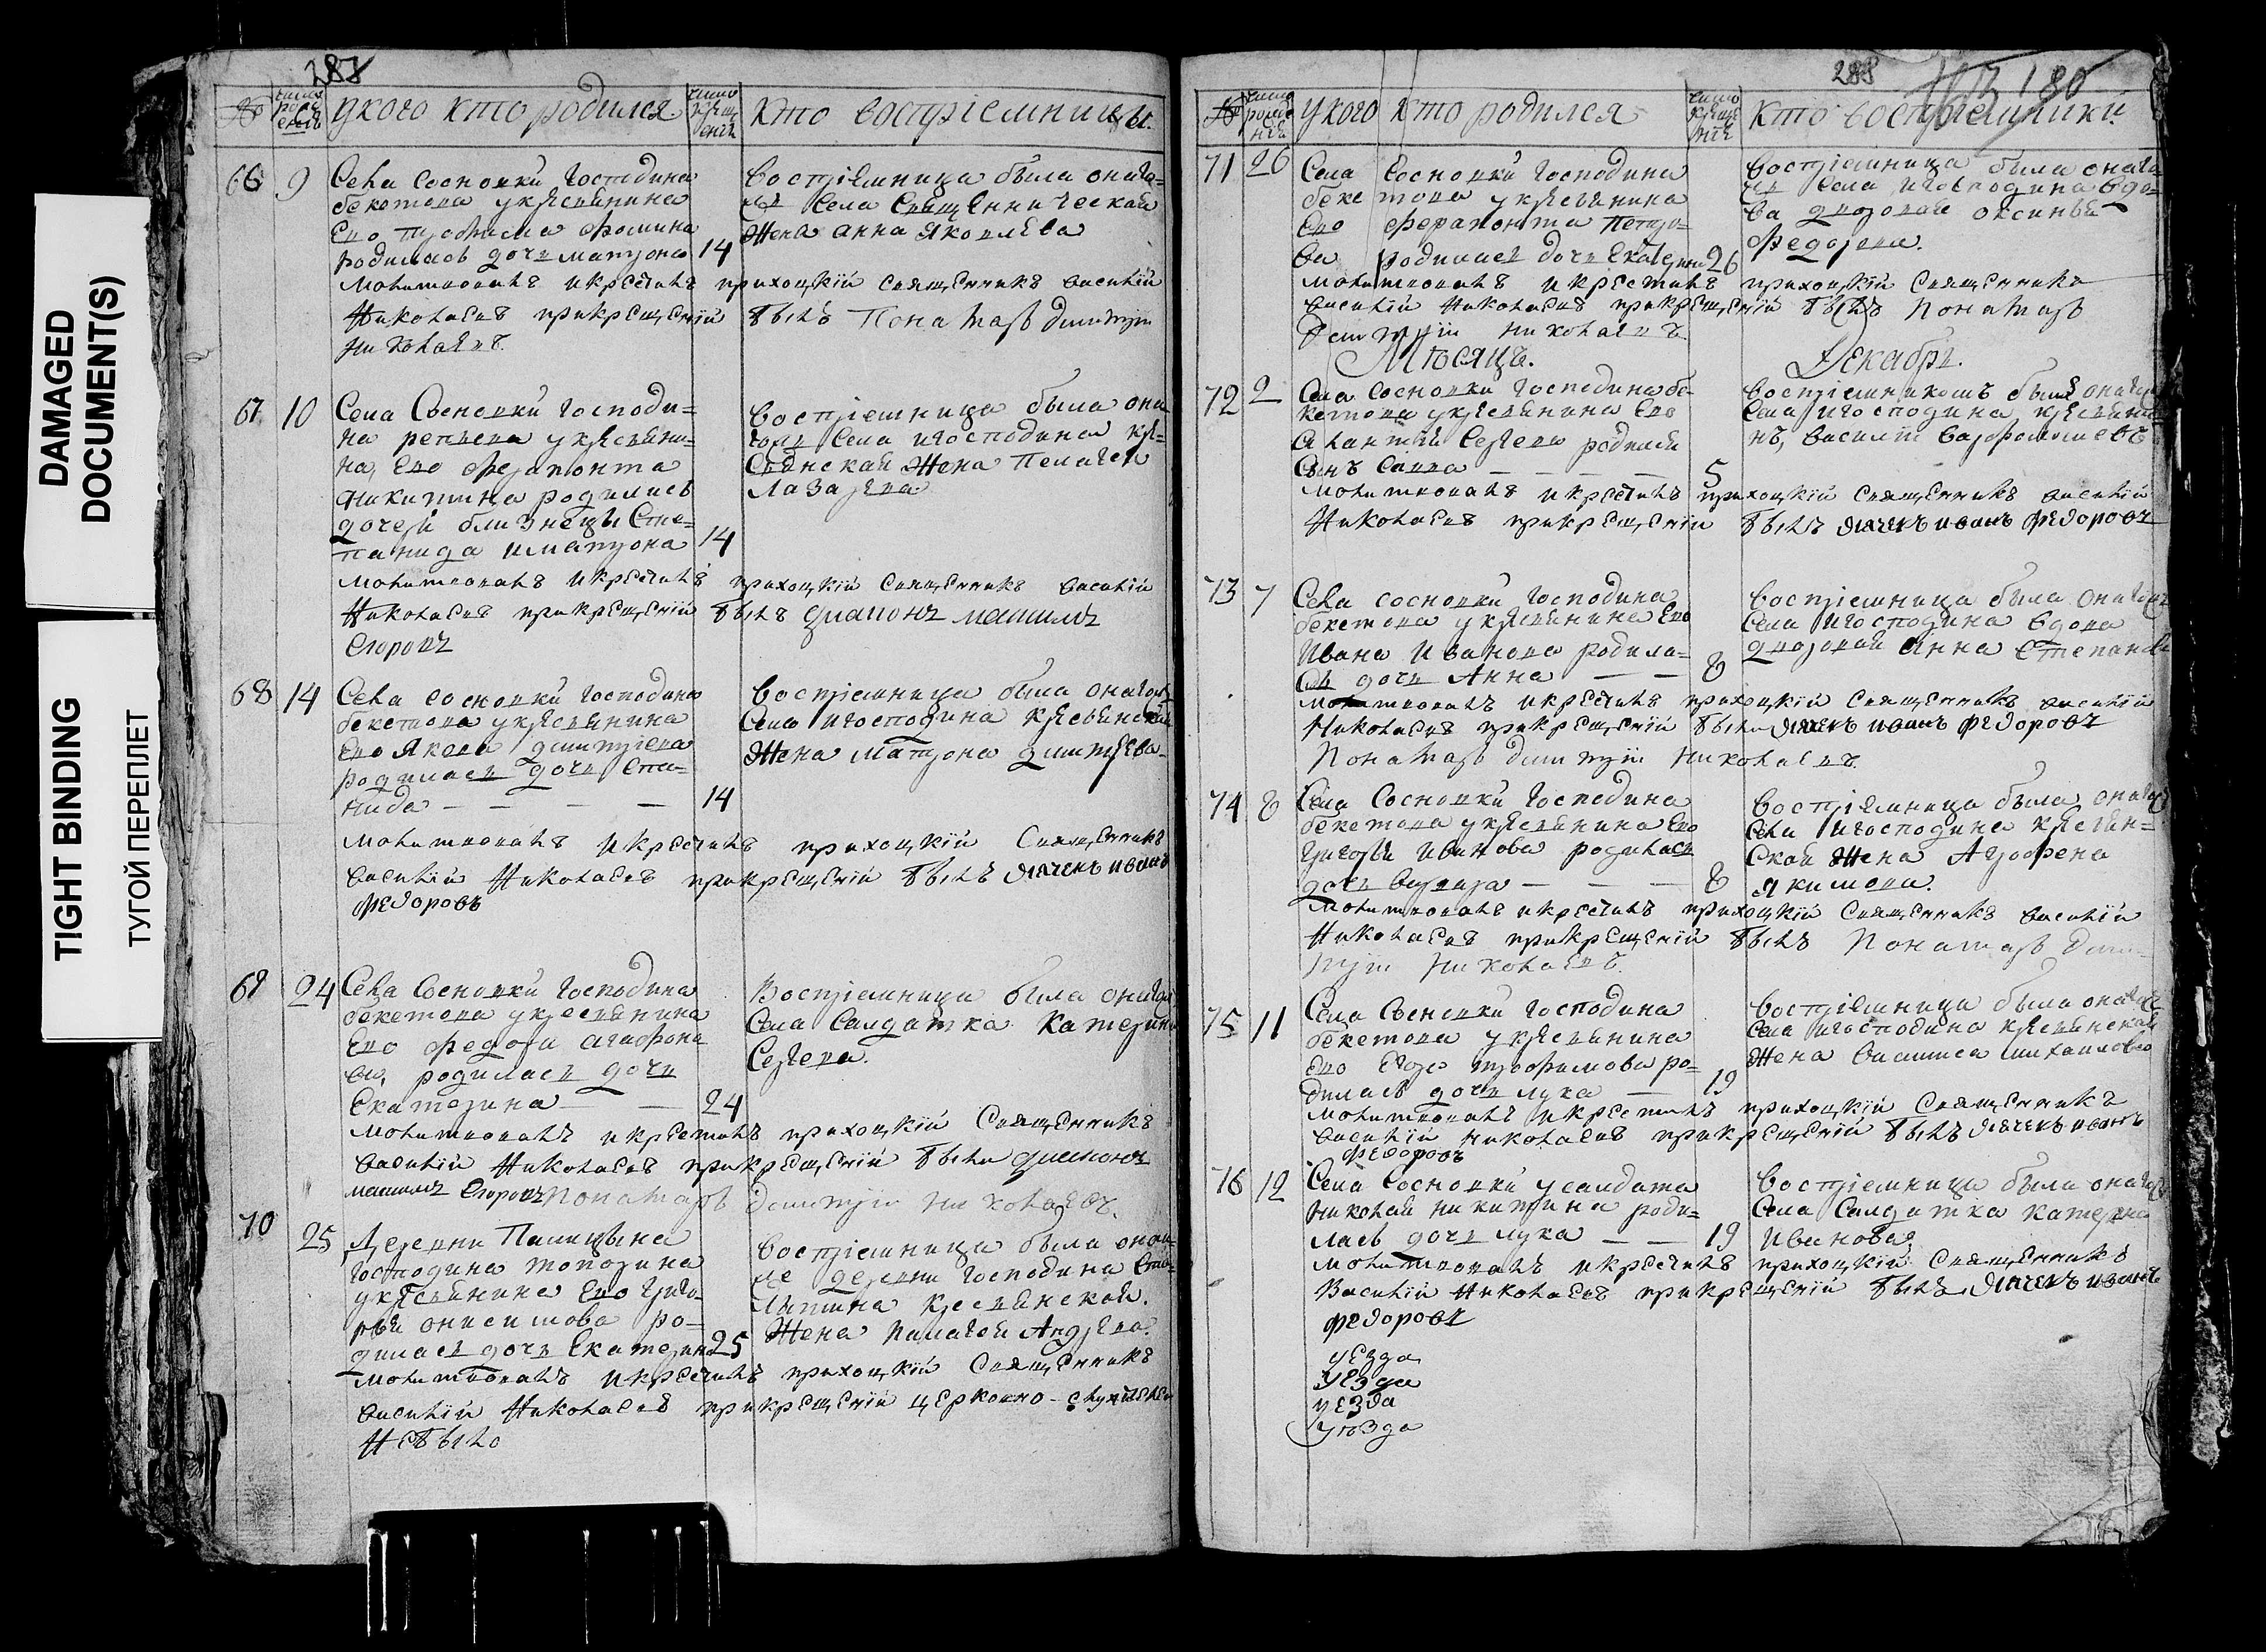 DAMAGED
DOCUMENT(S)
TIGHT BINDING
ТУГОЙ ПЕРЕПЛЕТ
287
№
число рожденiя
у кого кто родился
число крещенiя
кто воспрiемники.
66 9 Села Сосновки Господина
бекетова укрестьянина
Ево трофима фомина
родилась дочь матрона 14
воспрiемница была онаго=
жъ Села Священническая
жена анна Яковлева
молитвовалъ икрестилъ приходцкiй священникъ василiй
Николаевъ прикрещенiй былъ Понамарь димитрiи
николаевъ.
67 10 Села Сосновки Господи=
на репьева укрестьяни=
на, Ево ферапонта
никитина родились
дочери близнецы Сте=
панида иматрона 14
воспрiемница была она
гожъ Села игосподина кре=
стьянская жена Пелагея
Лазарева.
молитвовалъ икрестилъ приходцкiй священникъ василiй
Николаевъ прикрещенiй былъ дiаконъ
Егоровъ
68 14 Села сосновки Господина
бекетова укрестьянина
Ево Якова димитрiева
родилась дочь Степа=
нида — — — — 14
воспрiемница была онагожъ
Села игосподина крестьянская
жена Матрона димитрева
молитвовалъ икрестилъ приходцкiй священникъ
василiй Николаевъ прикрещенiй былъ дiячекъ иванъ
федоровъ
69 24 Села Сосновки Господина
бекетова укрестьянина
Ево федора агафоно
ва, родилась дочь
Екатерина — — 24
Воспрiемница была онагожъ
Села Салдатка Катерина
Сергева.
молитвовалъ икрестилъ приходцкiй священникъ
василiй Николаевъ прикрещенiй были дiаконъ
Егоровъ Понамарь димитрiи николаевъ.
70 25 Деревни
Господина топорина
укрестьянина Ево григо
рья онисимова ро=
дилась дочь Екатерина 25
воспрiемница была оной
же деревни Господина
крестьянская.
жена палагея Андрева.
молитвовалъ икрестилъ приходцкiй священникъ
василiй Николаевъ прикрещенiи церковно-служителей
Небыло
288
180
№
число рожденiя
у кого кто родился
число крещенiя
кто воспрiемники.
71 26 Села Сосновки Господина
бекетова укрестьянина
Ево ферапонта петро=
ва родилась дочь Екатерина 26
воспрiемница была онаго
жъ Села игосподина вдо=
ва дворовая оксинья
федорова.
молитвовалъ икрестилъ приходцкiй священникъ
василiй николаевъ прикрещенiй былъ Понамарь
димитрiи николаевъ.
Мѣсяцъ. Декабрь.
72 2 Села Сосновки Господина бе-
кетова укрестьянина Ево
Сергева родился
Сынъ Савва — — — — 5
воспрiемникомъ былъ онагожъ
Села игосподина крестьяни
нъ, василiй варфоломеевъ
молитвовалъ икрестилъ приходцкiй священникъ василiй
Николаевъ прикрещенiи былъ дiячекъ иванъ федоровъ
73 7 Села сосновки Господина
бекетова укрестьянина Ево
Ивана Иванова родила=
сь дочь Анна — — 8
воспрiемница была онагожъ
Села игосподина вдова
дворовая Анна Степанова
молитвовалъ икрестилъ приходцкiй священникъ василiй
Николаевъ прикрещенiй были дiячекъ иванъ федоровъ
Понамарь димитрiи николаевъ.
74 8 Села Сосновки Господина
бекетова укрестьянина Ево
Григорья Иванова родилась
дочь варвара — — — 8
воспрiемница была онагожъ
Села игосподина крестьян=
ская жена Агрофена
якимова.
молитвовалъ икрестилъ приходцкiй священникъ василiй
Николаевъ прикрещенiй былъ Понамарь дими
трiи николаевъ.
75 11 Села Сосновки Господина
бекетова укрестьянина
Ево Егора трофимова ро=
дилась дочь лука — 19
воспрiемница была онагожъ
Села игосподина крестьянская
жена василиса михаилова
молитвовалъ икрестилъ приходцкiй священникъ
василiй николаевъ прикрещенiй былъ дiячекъ иванъ
федоровъ
76 12 Села Сосновки усалдата
николая никитина роди=
лась дочь лука — — 19
воспрiемница была онагожъ
Села Салдатка катерина
Иванова.
молитвовалъ икрестилъ приходцкiй священникъ
Василiй Николаевъ прикрещенiй былъ дiячекъ иванъ
федоровъ
уезда
уезда
уезда
уѣзда